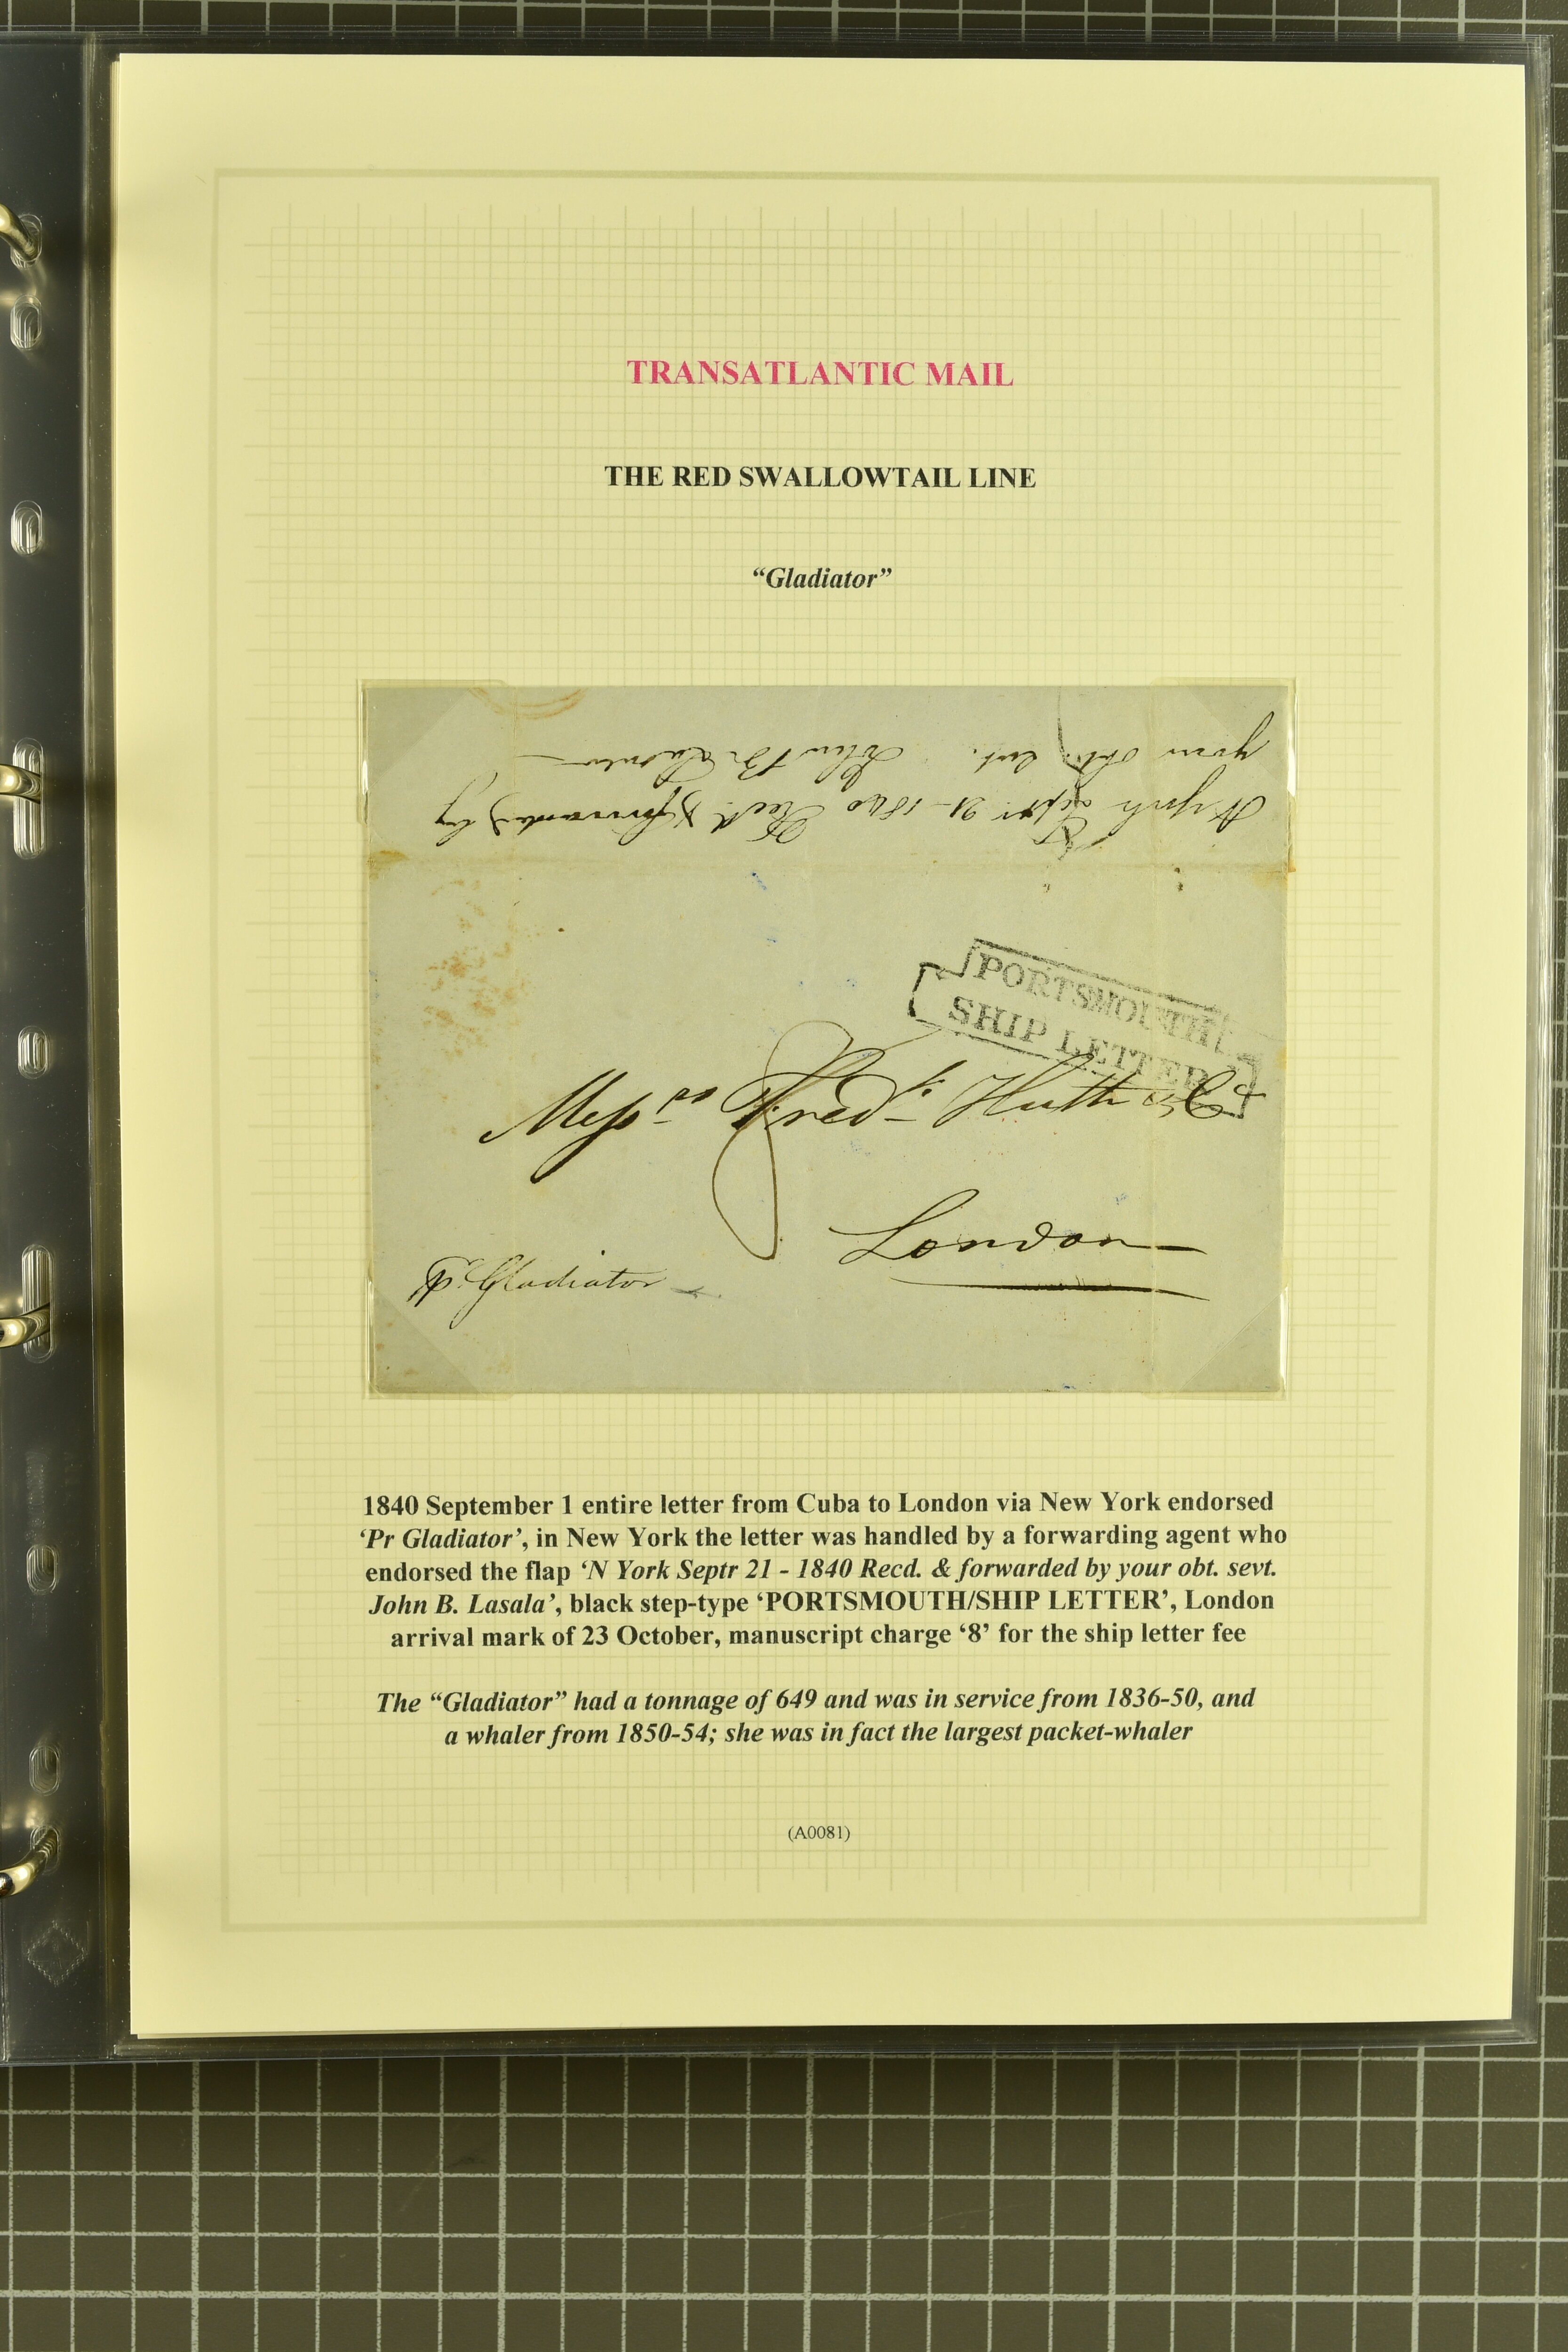 TRANSATLANTIC MAIL
THE RED SWALLOWTAIL LINE
“Gladiator”
N York Septr 21 - 1840 Recd. & forwarded by
your obt. svt. John B. Lasala
PORTSMOUTH
SHIP LETTER
8
Messrs Fredk. Huth & Co
London
pr. Gladiator
1840 September 1 entire letter from Cuba to London via New York endorsed
‘Pr Gladiator’, in New York the letter was handled by a forwarding agent who
endorsed the flap ‘N York Septr 21 - 1840 Recd. & forwarded by your obt. sevt.
John B. Lasala’, black step-type ‘PORTSMOUTH/SHIP LETTER’, London
arrival mark of 23 October, manuscript charge ‘8’ for the ship letter fee
The “Gladiator” had a tonnage of 649 and was in service from 1836-50, and
a whaler from 1850-54; she was in fact the largest packet-whaler
(A0081)